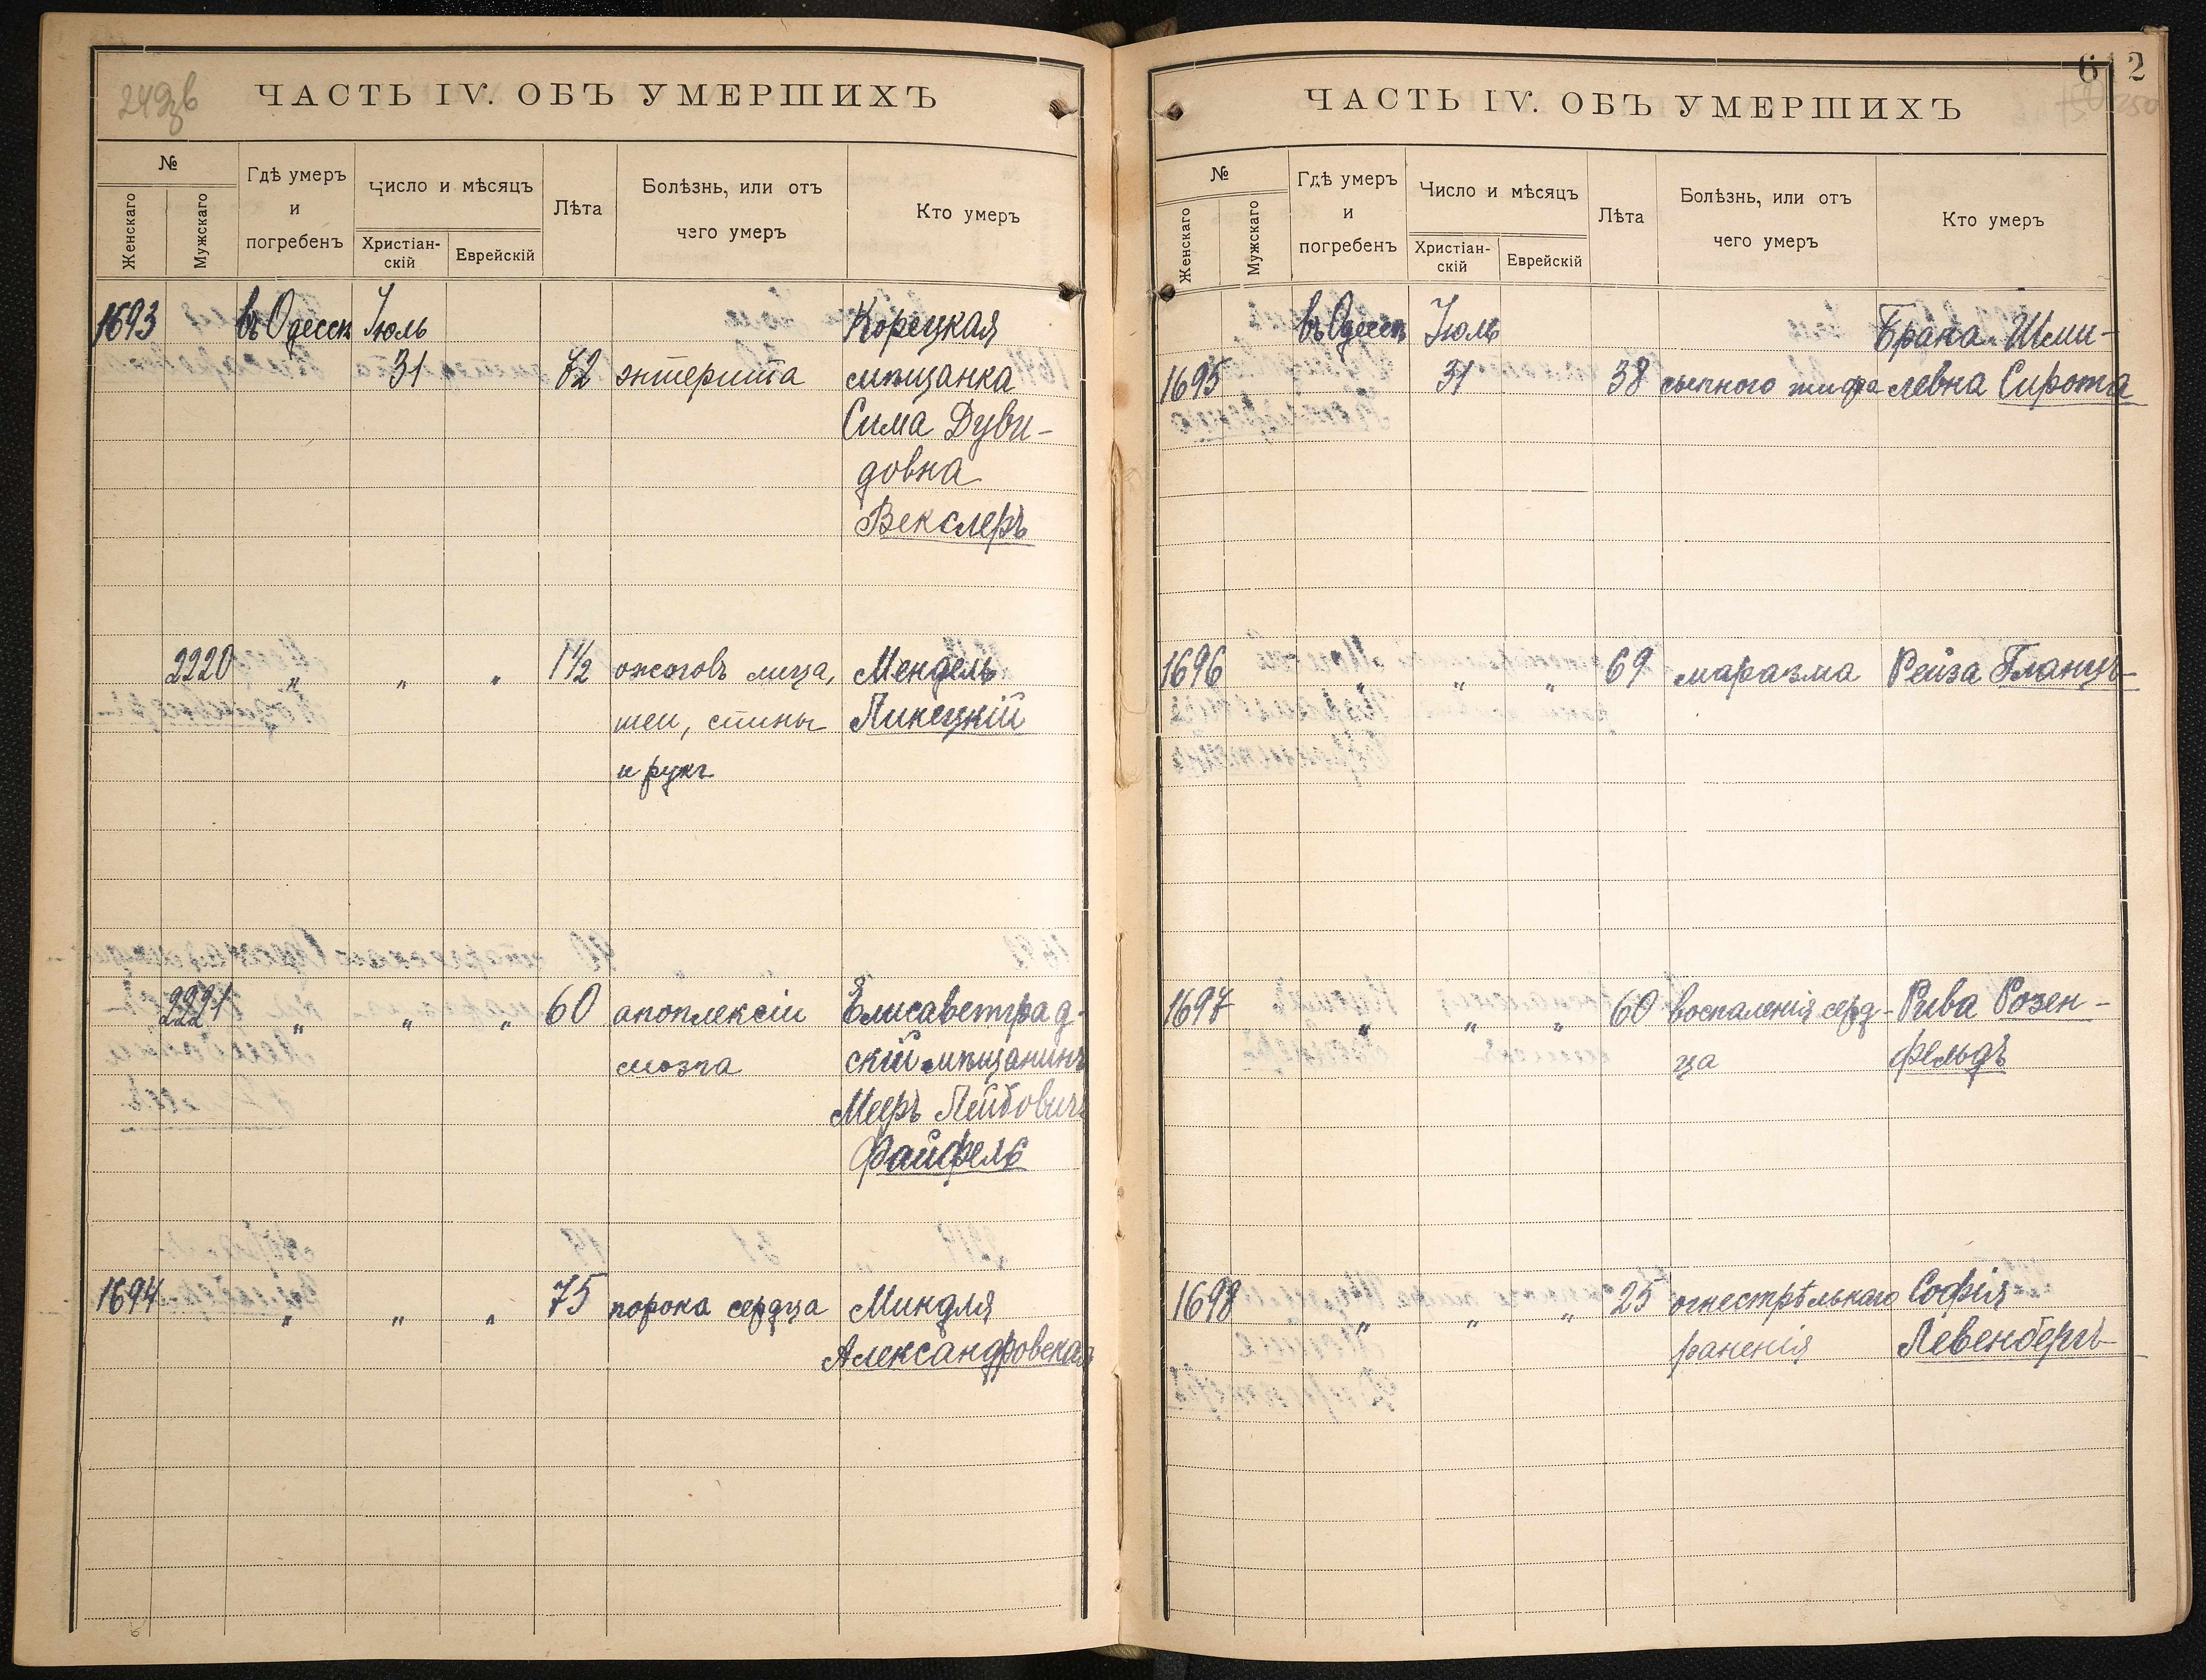 249зв
ЧАСТЬ IV. ОБЪ УМЕРШИХЪ
№
Женскаго
Мужскаго
Гдѣ умеръ
и
погребенъ
Число и мѣсяцъ
Христіан-
скій
Еврейскій
Лѣта
Болѣзнь, или отъ
чего умеръ
Кто умеръ
1693 въ Одессѣ Іюль Корецкая
31 72 энтерита мѣщанка
Сима Дуви-
довна
Векслеръ
2220 " " " 1½ ожоговъ лица, Мендель
шеи, спины Линецкій
и рукъ
2221 " " " 60 апоплексіи Елисаветград-
мозга скій мѣщанинъ
Мееръ Лейбовичъ
Файфель
1694 " " " 75 порока сердца Миндля
Александровская
612
250
ЧАСТЬ IV. ОБЪ УМЕРШИХЪ
№
Женскаго
Мужскаго
Гдѣ умеръ
и
погребенъ
Число и мѣсяцъ
Христіан-
скій
Еврейскій
Лѣта
Болѣзнь, или отъ
чего умеръ
Кто умеръ
въ Одессѣ Іюль Брана Шми-
1695 31 38 сыпного тифа левна Сирота
1696 " " " 69 маразма Рейза Гланцъ
1697 " " " 60 воспаленія серд- Рива Розен-
ца фельдъ
1698 " " " 25 огнестрѣльнаго Софія
раненія Левенбергъ